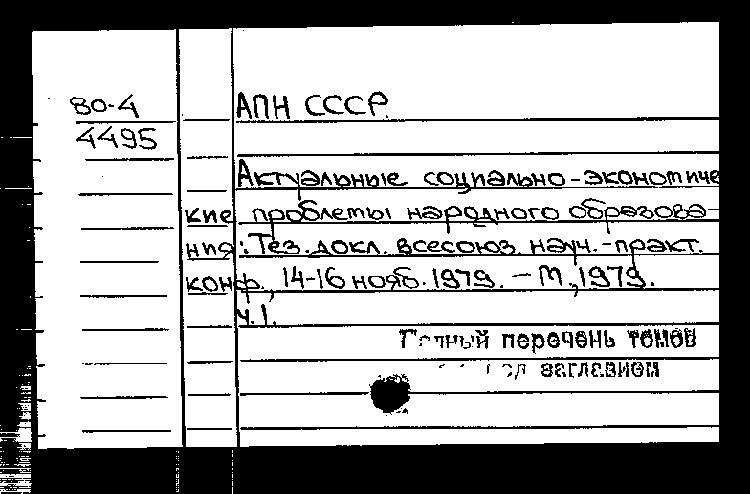 80-4
4495
АПН СССР.
Актуальные социально-экономиче
кие проблемы народного образова-
ния: Тез. докл. всесоюз. науч.-практ.
конф., 14-16 нояб. 1979. - М., 1979.
Ч.1.
Полный перечень томов
под заглавием